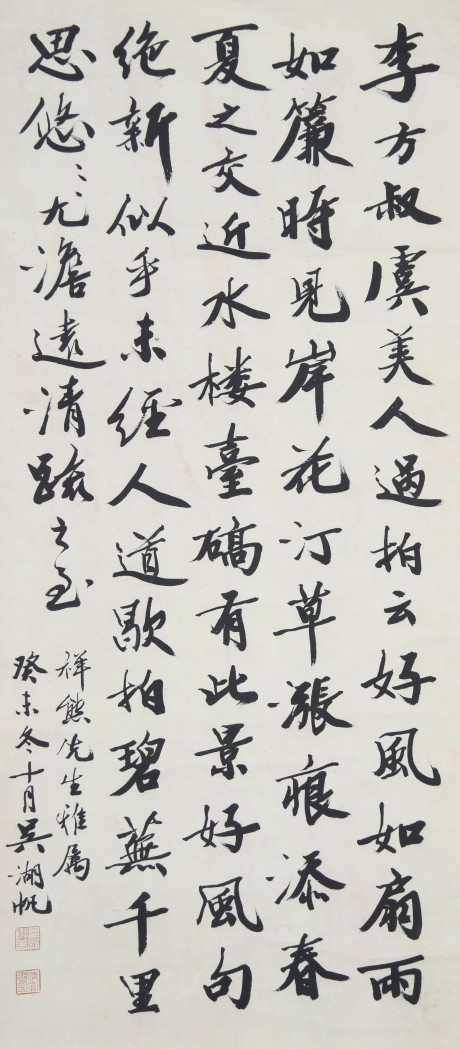 李方叔虞美人過拍云好風如扇雨
如簾時見岸花汀草漲痕添春
夏之交近水樓臺礄有此景好風句
绝新似乎未經人道歇拍碧蕪千里
思悠〻尤澹遠清絕之至
祥熊先生雅属
癸未冬十月吳湖帆